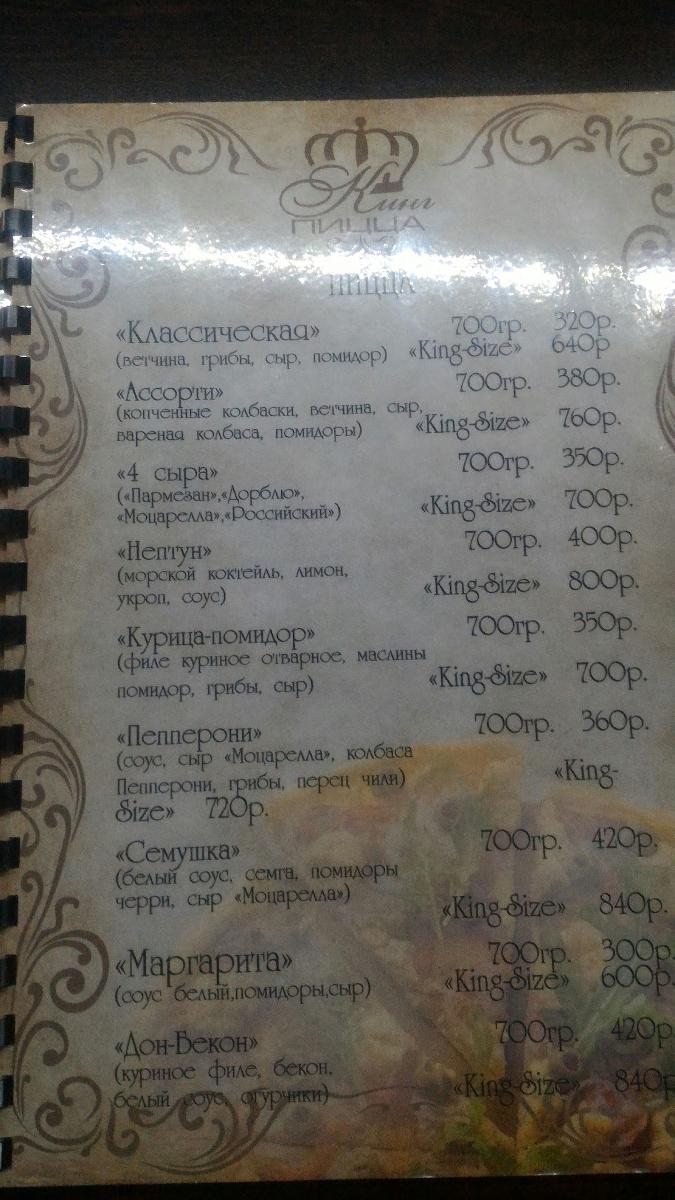 Кинг
ПИЦЦА
ПИЦЦА
«Классическая» 700гр. 320р.
(ветчина, грибы, сыр, помидор) «King-Size» 640р
«Ассорти» 700гр. 380р.
(копченные колбаски, ветчина, сыр,
вареная колбаса, помидоры) «King-Size» 760р.
«4 сыра» 700гр. 350р.
(«Пармезан»,«Дорблю»,
«Моцарелла»,«Российский») «King-Size» 700р.
«Нептун» 700гр. 400р.
(морской коктейль, лимон,
укроп, соус) «King-Size» 800р.
«Курица-помидор» 700гр. 350р.
(филе куриное отварное, маслины
помидор, грибы, сыр) «King-Size» 700р.
«Пепперони» 700гр. 360р.
(соус, сыр «Моцарелла», колбаса
Пепперони, грибы, перец чили) «King-
Size» 720р.
«Семушка» 700гр. 420р.
(белый соус, семга, помидоры
черри, сыр «Моцарелла»)
«King-Size» 840р.
«Маргарита» 700гр. 300р.
(соус белый,помидоры,сыр) «King-Size» 600р.
«Дон-Бекон» 700гр. 420р
(куриное филе, бекон,
белый соус, огурчики) «King-Size» 840р